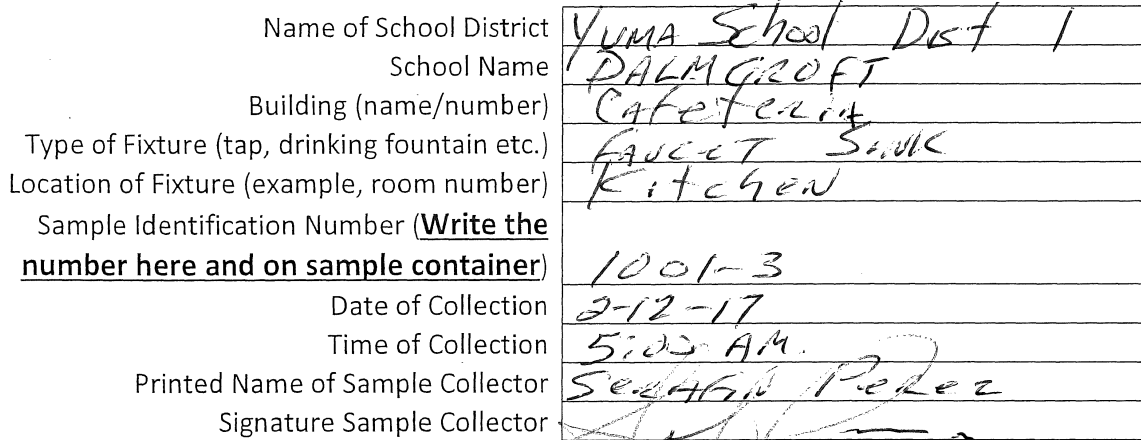 Name of School District YUMA School Dist 1
School Name PALMCROFT
Building (name/number) CAfeteriA
Type of Fixture (tap, drinking fountain etc.) FAUCET SINK
Location of Fixture (example, room number) KitcheN
Sample Identification Number (Write the
number here and on sample container) 1001-3
Date of Collection 2-12-17
Time of Collection 5:00 AM.
Printed Name of Sample Collector Perez
Signature Sample Collector